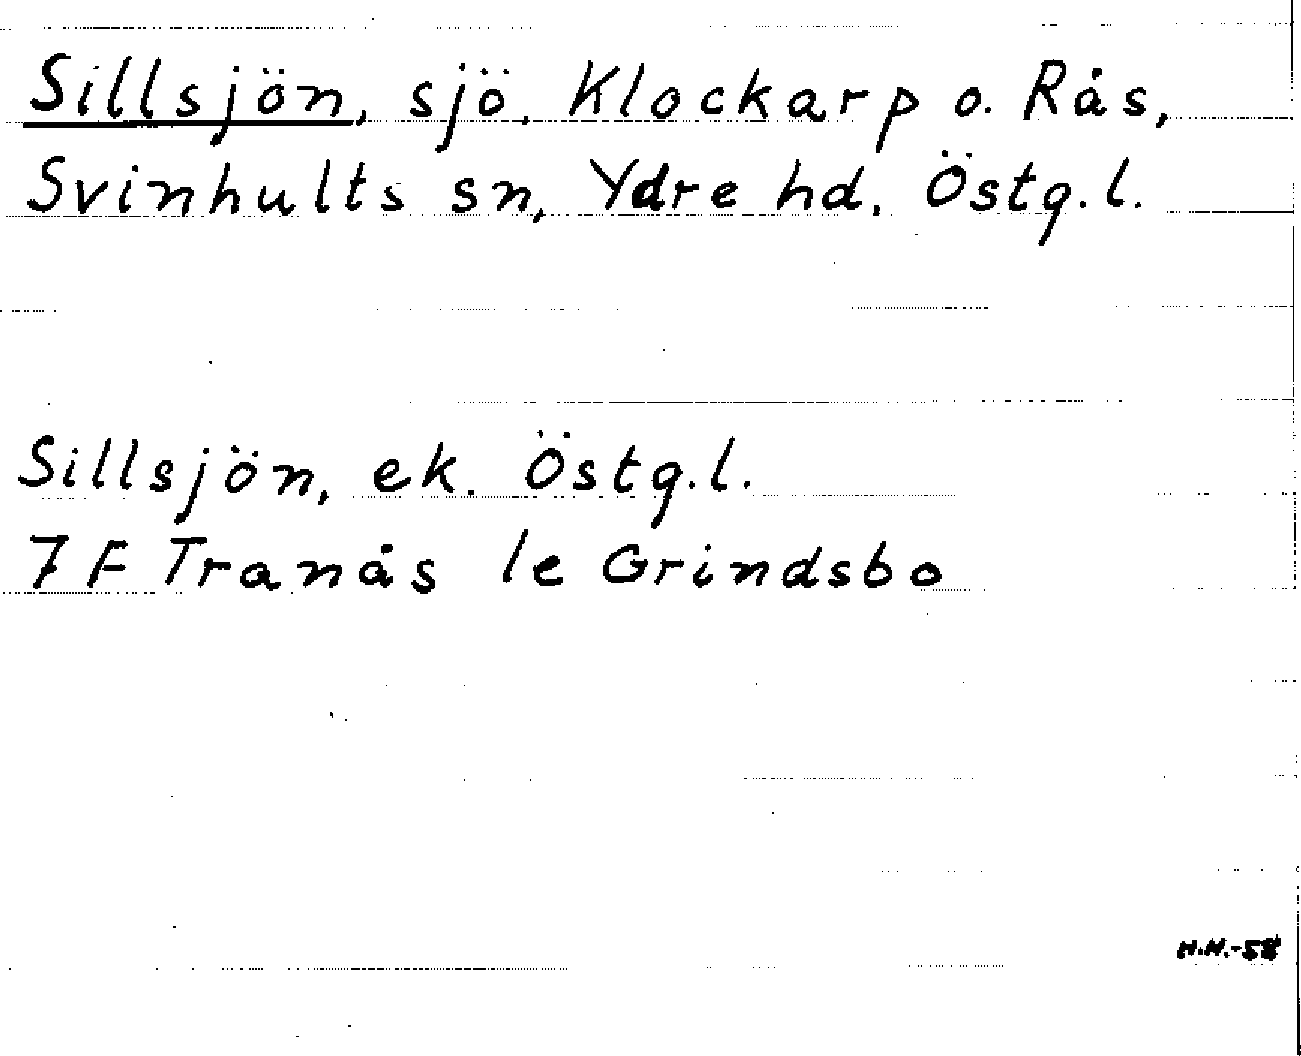 Sillsjön, sjö, Klockarp o. Rås,
Svinhults sn, Ydre hd, Östg.l.
Sillsjön, ek. Östg.l.
7 F Tranås le Grindsbo
H.H.-58